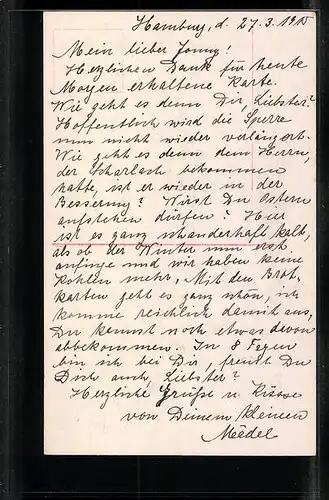 Hamburg, d. 27.3.1915
Mein lieber Jonny!
Herzlichen Dank für heute
Morgen erhaltene Karte.
Wie geht es denn Dir, Liebster?
Hoffentlich wird die Sperre
nun nicht wieder verlängert.
Wie geht es denn dem Herrn,
der Scharlach bekommen
hatte, ist er wieder in der
Besserung? Wirst Du Ostern
aufstehen dürfen? Hier
ist es ganz schauderhaft kalt,
als ob der Winter nun erst
anfinge und wir haben keine
Kohlen mehr. Mit den Brot-
karten geht es ganz schön, ich
komme reichlich damit aus,
Du kannst noch etwas davon
abbekommen. In 8 Tagen
bin ich bei Dir, freust Du
Dich auch, Liebster?
Herzliche Grüße u. Küsse
von Deinem kleinen
Mädel